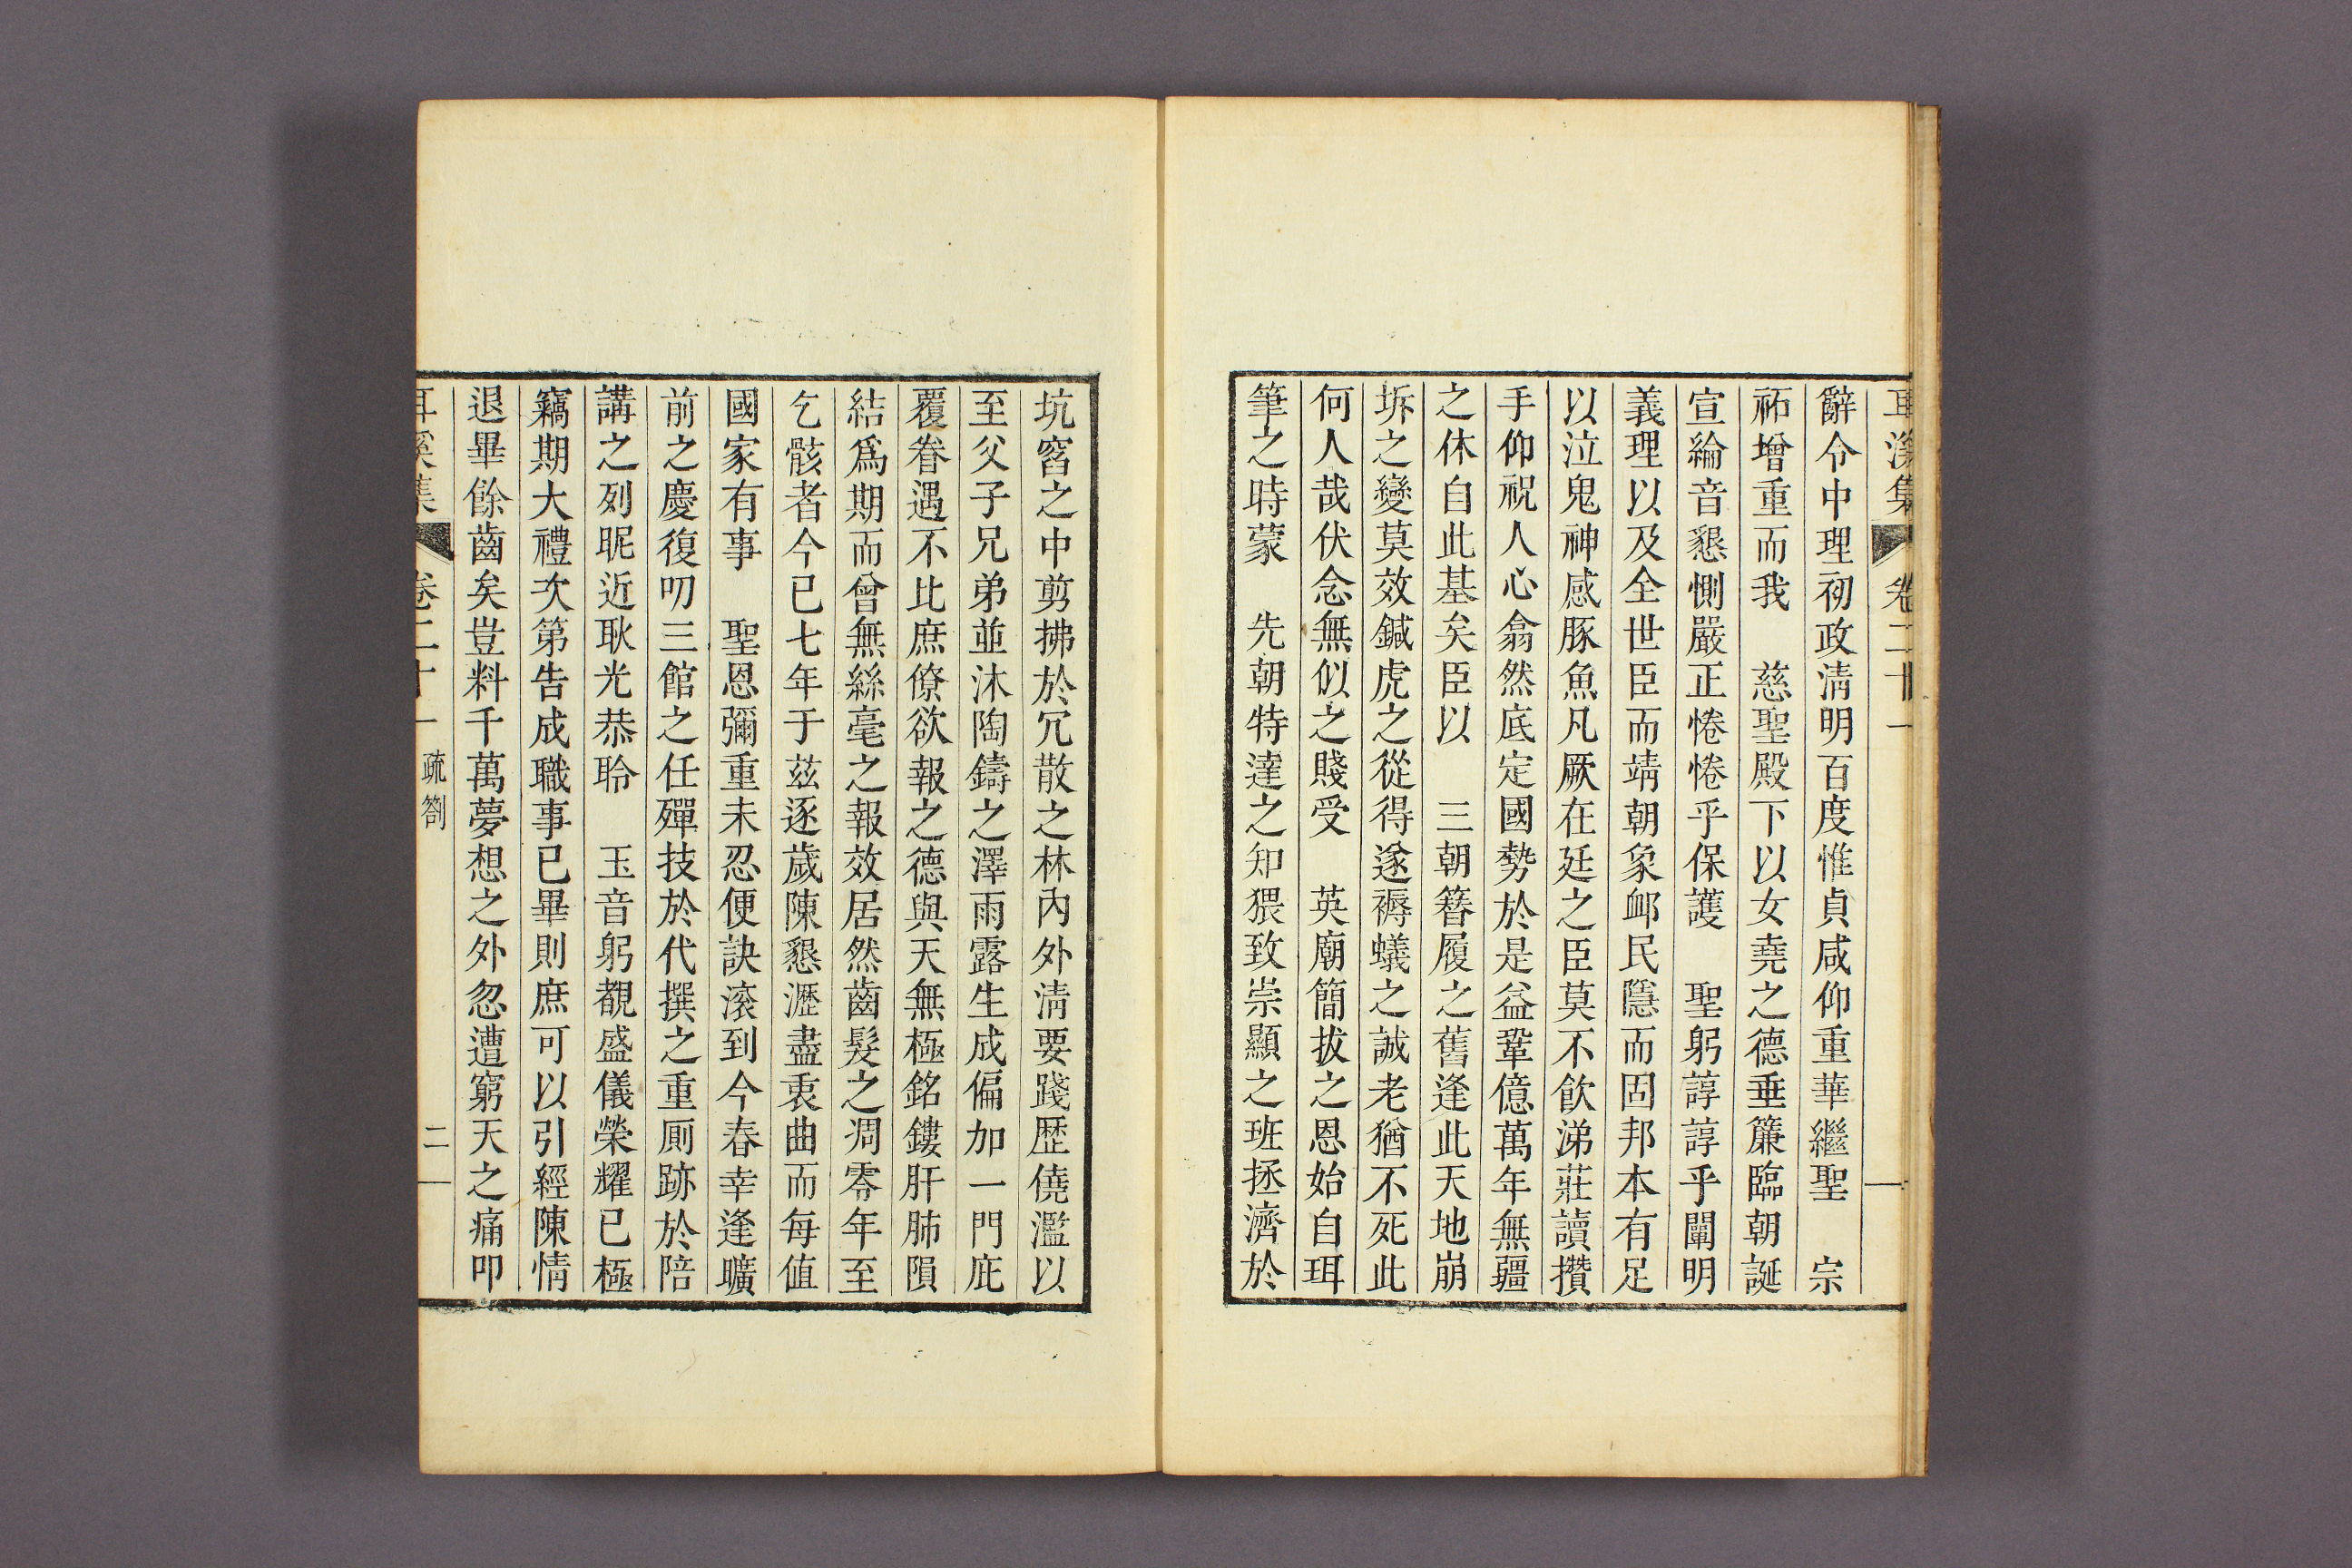 耳溪集 卷二十一
辭令中理初政清明百度惟貞咸仰重華繼聖 宗
祏增重而我 慈聖殿下以女堯之德垂簾臨朝誕
宣綸音懇惻嚴正惓惓乎保護 聖躬諄諄乎闡明
義理以及全世臣而靖朝象卹民隱而固邦本有足
以泣鬼神感豚魚凡厥在廷之臣莫不飮涕莊讀攢
手仰祝人心翕然底定國勢於是益鞏億萬年無疆
之休自此基矣臣以 三朝簪履之舊逢此天地崩
坼之變莫效鍼虎之從得遂褥蟻之誠老猶不死此
何人哉伏念無似之賤受 英廟簡拔之恩始自珥
筆之時蒙 先朝特達之知猥致崇顯之班拯濟於
坑窞之中剪拂於冗散之林內外淸要踐歷僥濫以
至父子兄弟並沐陶鑄之澤雨露生成偏加一門庇
覆眷遇不比庶僚欲報之德與天無極銘鏤肝肺隕
結爲期而曾無絲毫之報效居然齒髮之凋零年至
乞骸者今已七年于玆逐歲陳懇瀝盡衷曲而每値
國家有事 聖恩彌重未忍便訣滚到今春幸逢曠
前之慶復叨三館之任殫技於代撰之重厠跡於陪
講之列昵近耿光恭聆 玉音躬覩盛儀榮耀已極
竊期大禮次第告成職事已畢則庶可以引經陳情
退畢餘齒矣豈料千萬夢想之外忽遭窮天之痛叩
耳溪集 卷二十一 疏箚 二